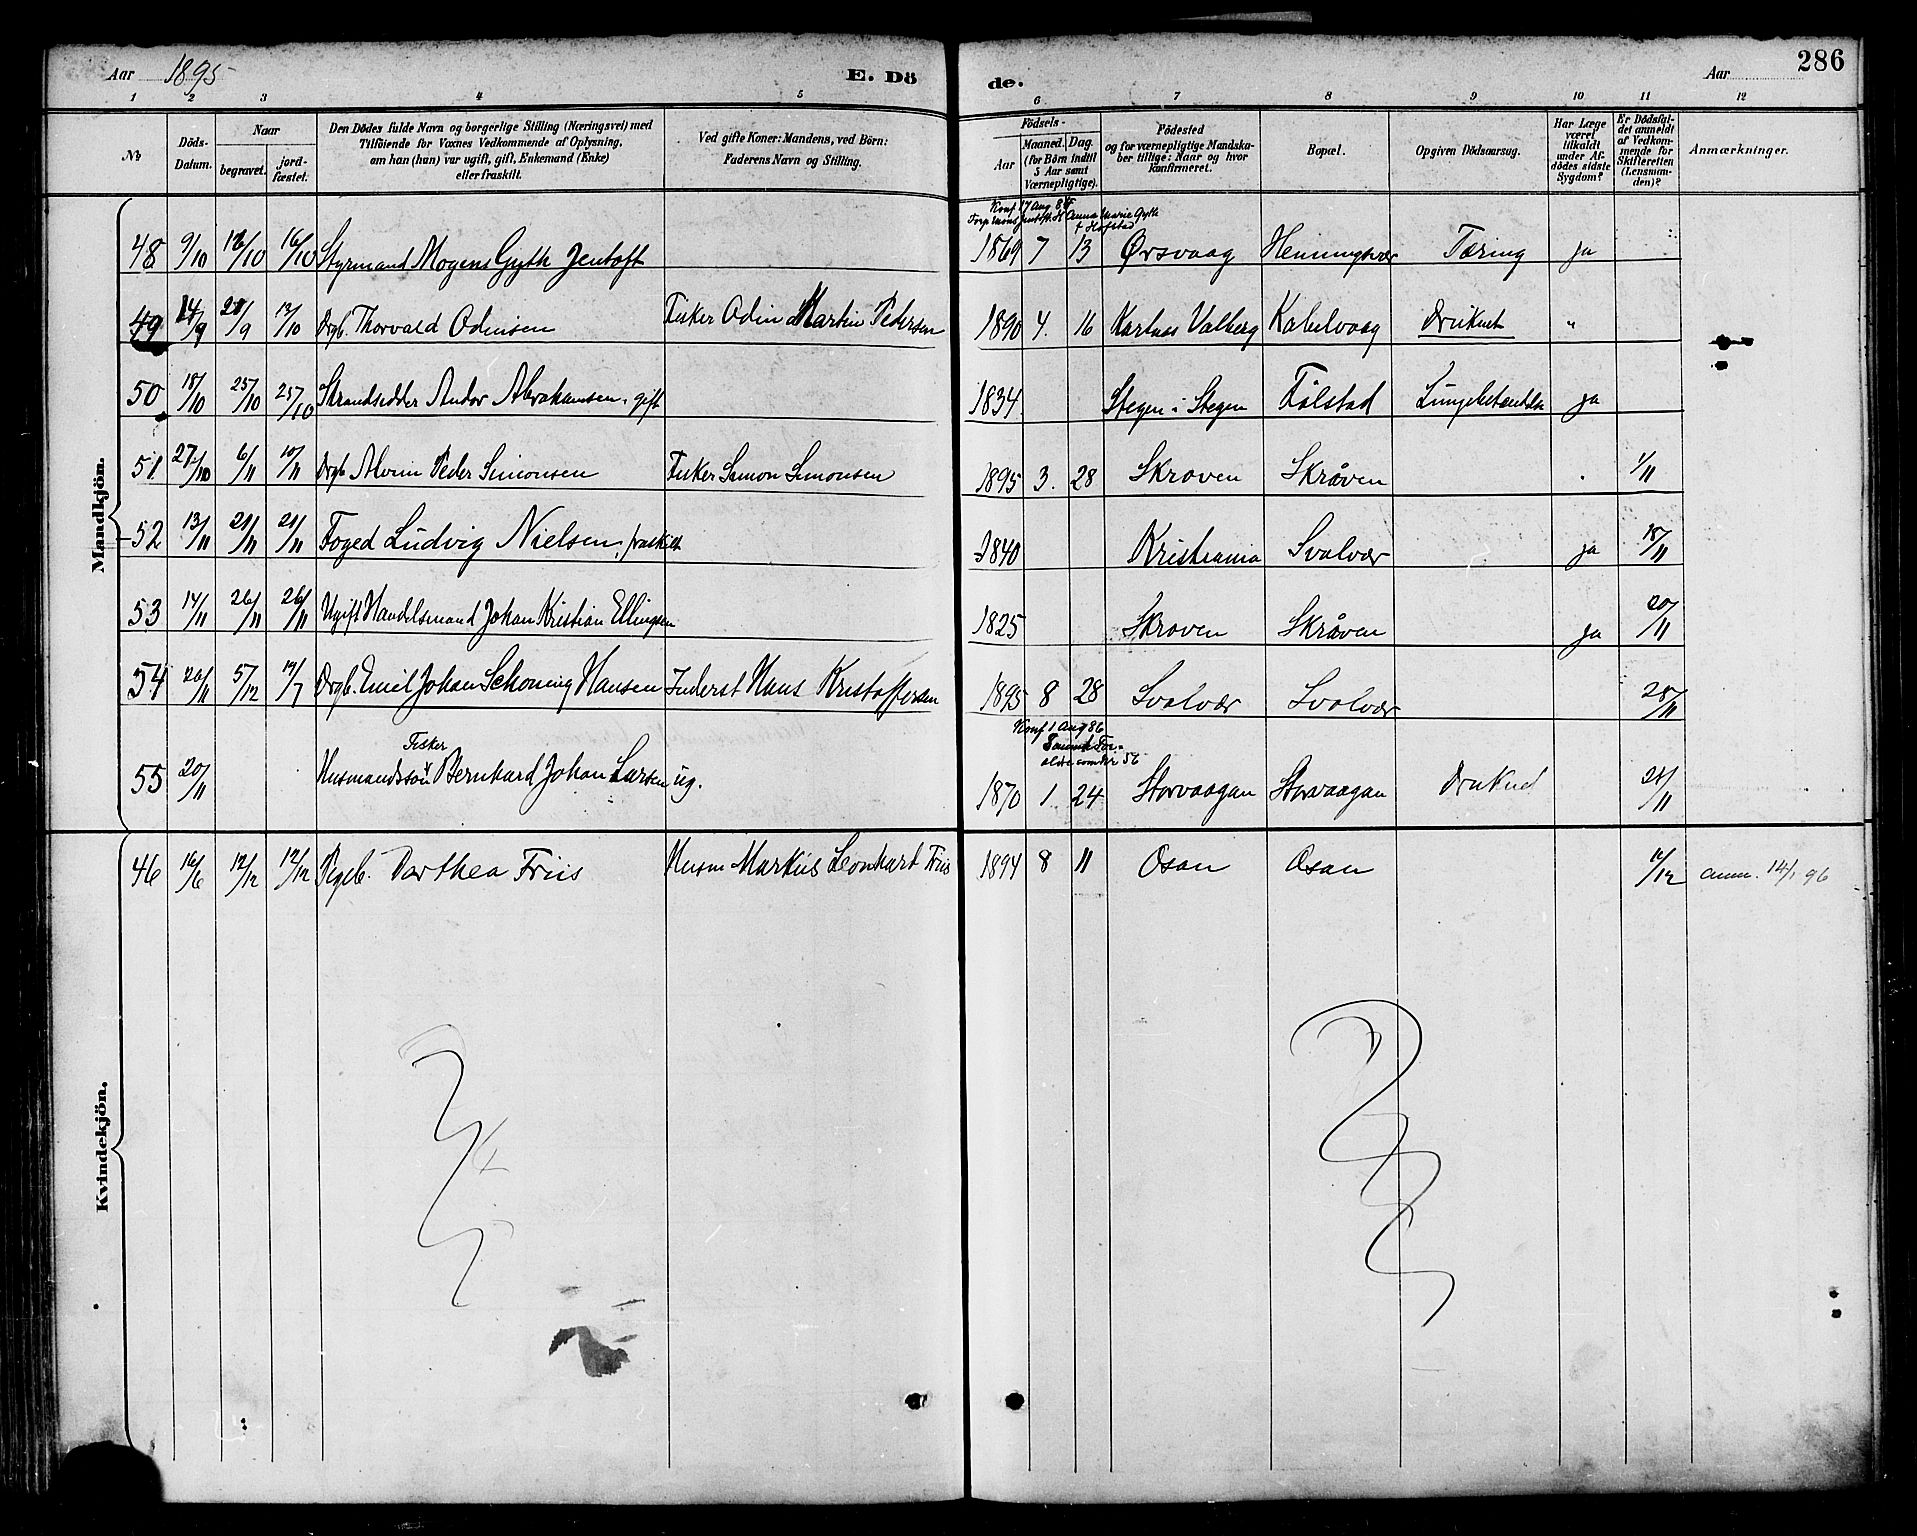 Aar 1895 E. Dö de. Aar 286
1 2 3 4 5 6 7 8 9 10 11 12
№ Döds-Datum. Naar begravet. jord-fæstet. Den Dödes fulde Navn og borgerlige Stilling (Næringsvei) med Tilföiende for Voxnes Vedkommende af Oplysning, om han (hun) var ugift, gift, Enkemand (Enke) eller fraskilt. Ved gifte Koner: Mandens, ved Börn: Faderens Navn og Stilling. Födsels- Aar Maaned. Dag. (for Börn indtil 5 Aar samt Værnepligtige). Födested og for værnepligtige Mandskaber tillige: Naar og hvor konfirmeret. Bopæl. Opgiven Dödsaarsag. Har Læge været tilkaldt under Afdödes sidste Sygdom? Er Dödsfaldet anmeldt af Vedkommende for Skifteretten (Lensmanden)? Anmærkninger.
Mandkjön.
Konf 17 Aug 84
Anna Marie Gyth
f Hofstad
48 9/10 16/10 16/10 Styrmand Mogens Gyth Jentoft 1869 7 13 Ørsvaag Henningsvær Tæring ja
49 14/9 21/9 13/10 Drgb. Thorvald Odinsen Fisker Odin Martin Pedersen 1890 4. 16 Kartnes Valberg Kabelvaag Druknet "
50 18/10 25/10 25/10 Strandsidder Andor Abrahamsen, gift 1834 Stegen i Stegen Følstad Lungebetændelse ja
51 27/10 6/11 10/11 Drgb Alvin Peder Simonsen Fisker Simon Simonsen 1895 3. 28 Skroven Skråven 1/11
52 13/11 21/11 21/11 Foged Ludvig Nielsen, fraskilt 1840 Kristiania Svolvær ja 18/11
53 14/11 26/11 26/11 Ugift Handelsmand Johan Kristian Ellingsen 1825 Skroven Skråven ja 20/11
54 20/11 5/12 19/7 Drgb. Emil Johan Schøning Hansen Inderst Hans Kristoffersen 1895 8 28 Svolvær Svolvær 28/11
Konf 1 Aug 86
Fisker
55 20/11 Husmandssøn Bernhard Johan Larsen ug. 1870 1 24 Storvaagan Storvaagan Druknet 21/11
Kvindekjön.
46 16/6 12/12 12/12 Pigeb. Dorthea Friis Husm Markus Leonhart Friis 1894 8 11 Osan Osan 12/12 anm. 14/1 96